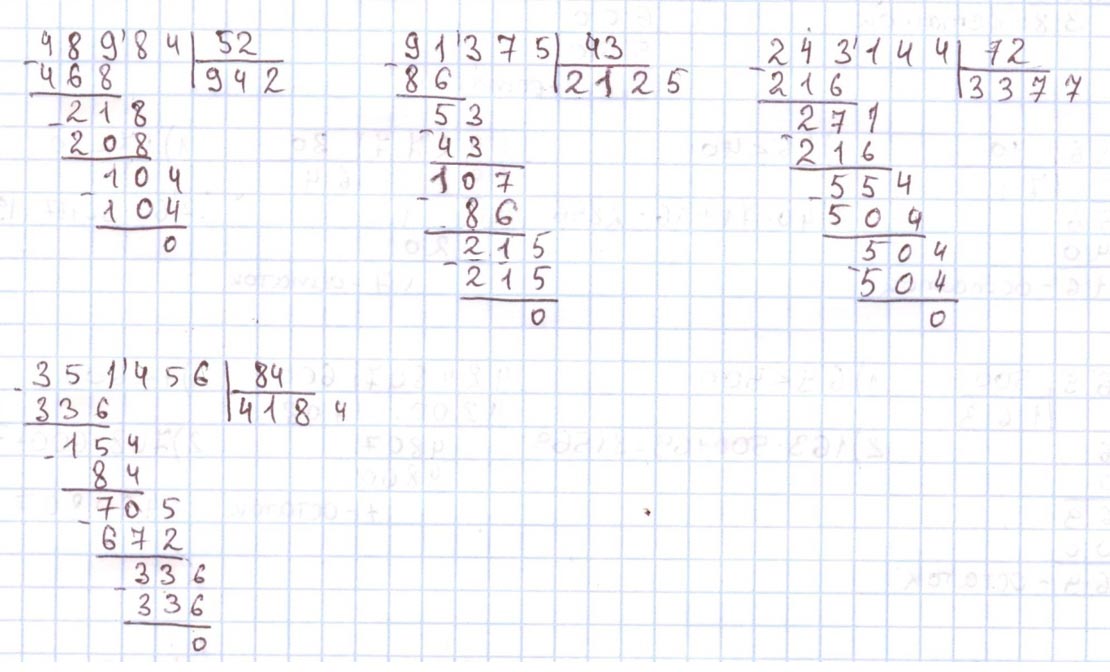 489'84 52
468 942
218
208
104
104
0
91'375 43
86 2125
53
43
107
86
215
215
0
243'144 72
216 3377
271
216
554
504
504
504
0
351'456 84
336 4184
154
84
705
672
336
336
0